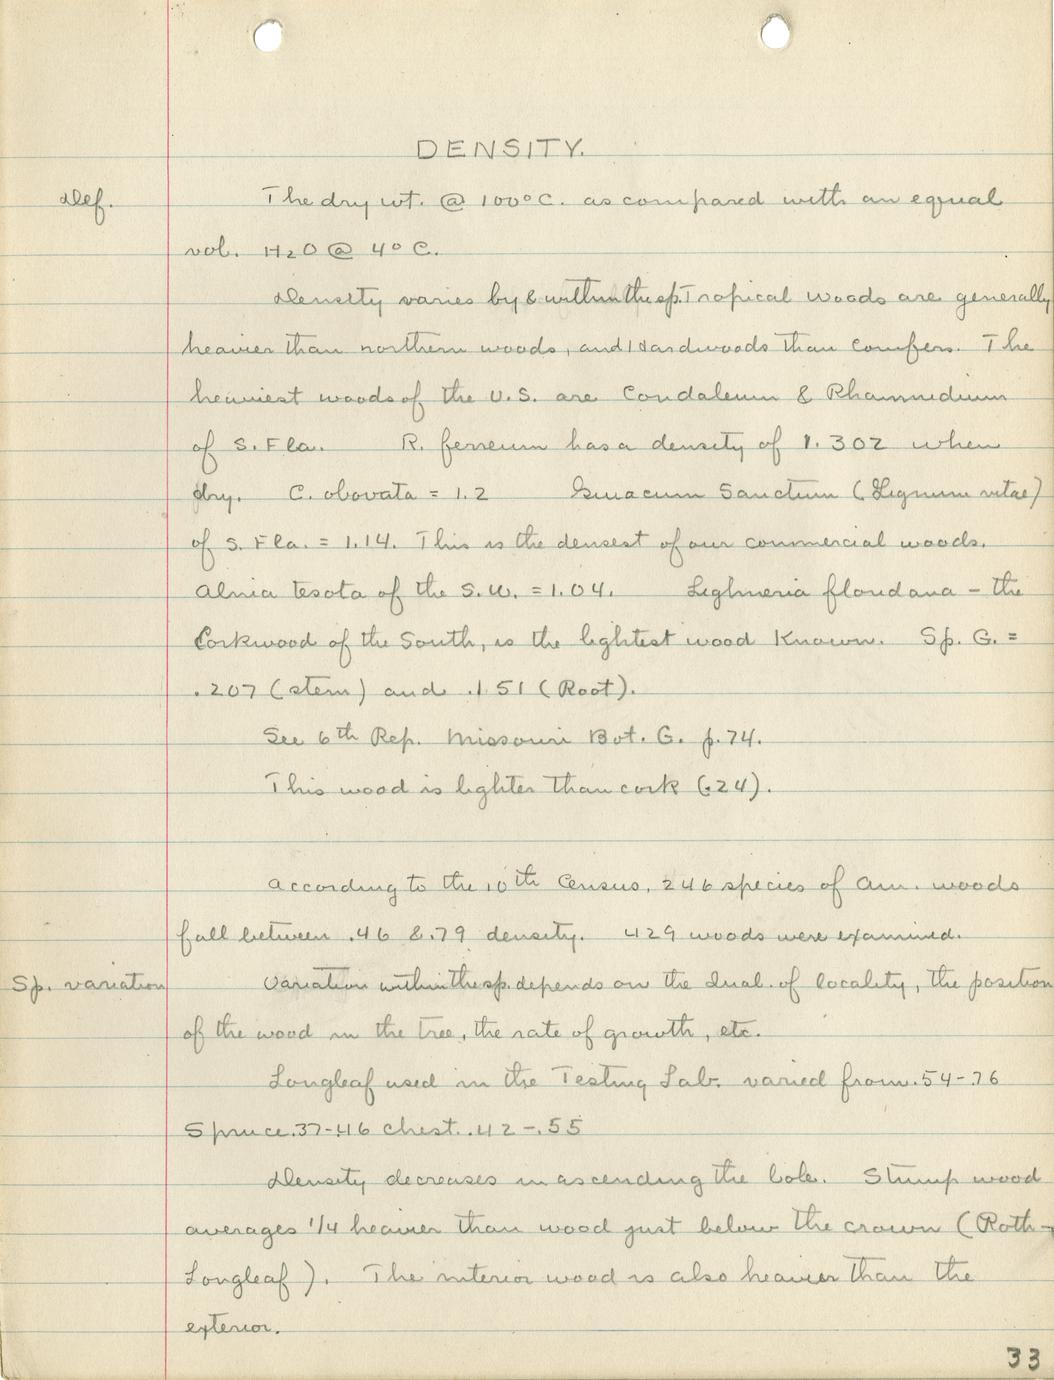 DENSITY.
Def. The dry wt. @ 100°C. as compared with an equal
vol. H2O @ 4° C.
Density varies by & within the sp. Tropical woods are generally
heavier than northern woods, and Hardwoods than Conifers. The
heaviest woods of the U.S. are Condaleum & Rhamnidium
of S. Fla. R. ferreum has a density of 1.302 when
dry. C. obovata = 1.2 Guiacum Sanctum (Lignum vitae)
of S. Fla. = 1.14. This is the densest of our commercial woods.
Alnia tesota of the S.W. = 1.04. Lighneria floridana - the
Corkwood of the South, is the lightest wood Known. Sp. G. =
.207 (stem) and .151 (Root).
See 6th Rep. Missouri Bot. G. p. 74.
This wood is lighter than cork (.24).
According to the 10th Census, 246 species of Am. woods
fall between .46 & .79 density. 429 woods were examined.
Sp. variation Variation within the sp. depends on the qual. of locality, the position
of the wood in the tree, the rate of growth, etc.
Longleaf used in the Testing Lab. varied from .54-.76
Spruce .37-.46 chest. .42-.55
Density decreases in ascending the bole. Stump wood
averages 1/4 heavier than wood just below the crown (Roth-
Longleaf). The interior wood is also heavier than the
exterior.
33